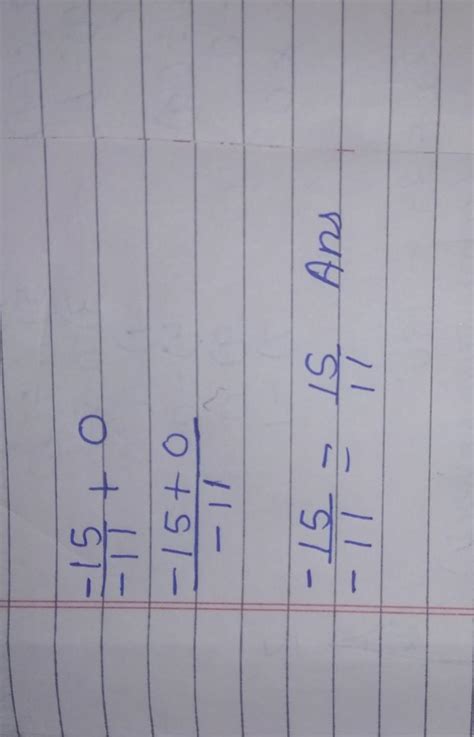 -15/-11 + 0
-15+0/-11
-15/-11 = 15/11 Ans